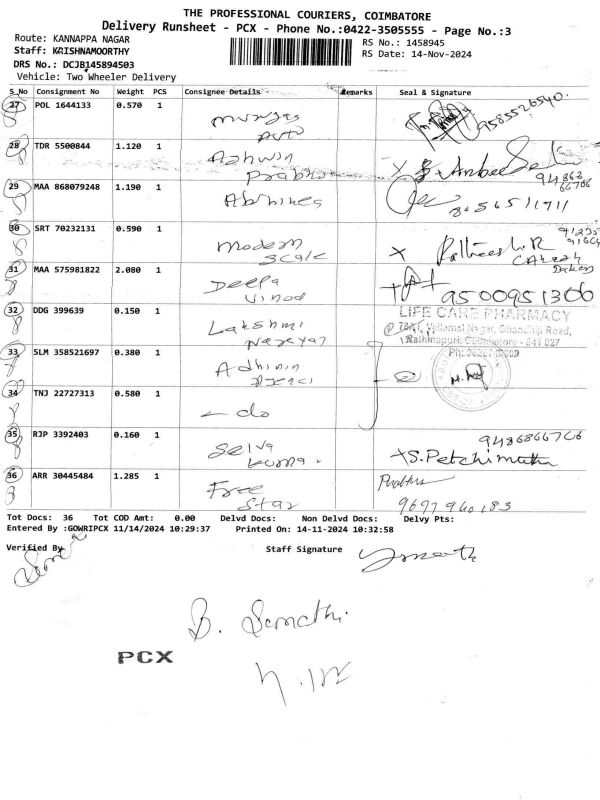 THE PROFESSIONAL COURIERS, COIMBATORE
Delivery Runsheet - PCX - Phone No.:0422-3505555 - Page No.:3
Route: KANNAPPA NAGAR
RS No.: 1458945
Staff: KRISHNAMOORTHY
RS Date: 14-Nov-2024
DRS No.: DCJB145894503
Vehicle: Two Wheeler Delivery
S No Consignment No Weight PCS Consignee Details Remarks Seal & Signature
27 POL 1644133 0.570 1 Murugas Auto 9585526540.
28 TDR 5500844 1.120 1 Ashwin Prabhu
94863 66706
29 MAA 868079248 1.190 1 Abhines 8056511711
30 SRT 70232131 0.590 1 Modern Scale
31 MAA 575981822 2.080 1 Deepa Vinod 9500951306
32 DDG 399639 0.150 1 Lakshmi Narayan
LIFE CARE PHARMACY
Vellamal Nagar, Ghandhiji Road,
Rathinapuri, Coimbatore - 641 027
33 SLM 358521697 0.380 1 Adhinin
34 TNJ 22727313 0.580 1 - do
35 RJP 3392403 0.160 1 Selva Kumar. 9486866706
S. Petchimuthu
36 ARR 30445484 1.285 1 Free Star Prabhu
9697940183
Tot Docs: 36 Tot COD Amt: 0.00 Delvd Docs: Non Delvd Docs: Delvy Pts:
Entered By :GOWRIPCX 11/14/2024 10:29:37 Printed On: 14-11-2024 10:32:58
Verified By Staff Signature
B. Sumathi.
PCX